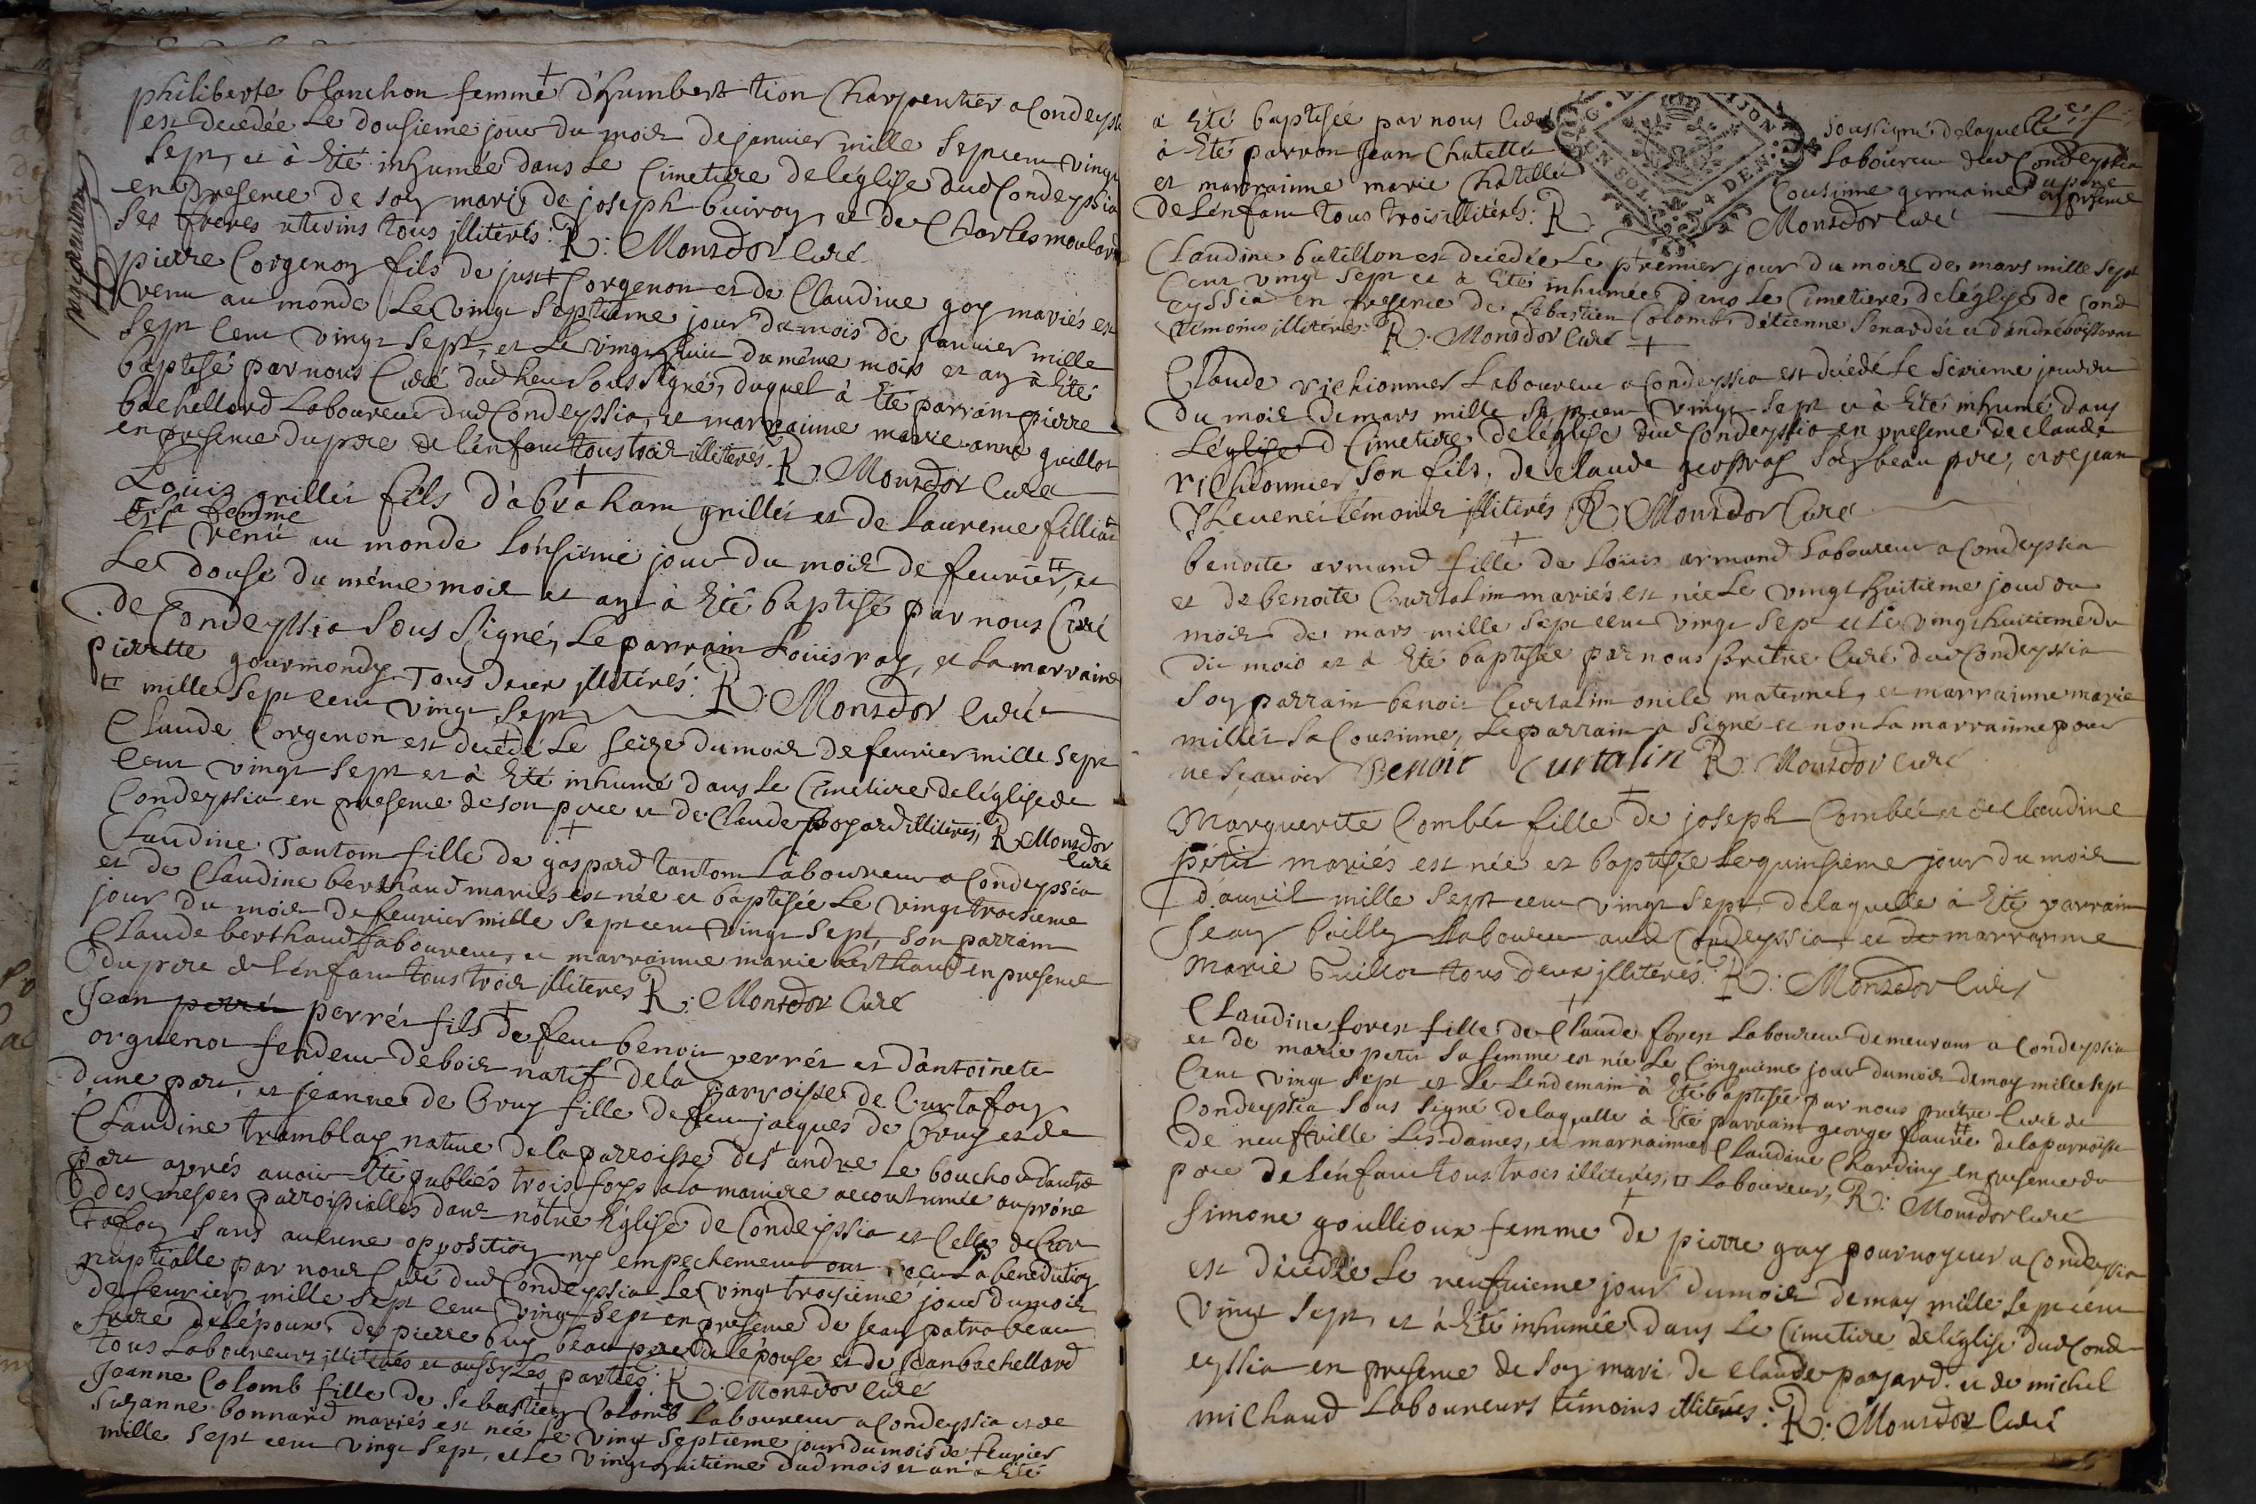 philiberte blanchon femme d'humbert tion Charpentier a Condeyssia
est decedée Le dousieme jour du mois de janvier mille septcent vingt
sept, et à Eté inhumée dans Le Cimetiere de leglise dud Condeyssia
en presence de son mari, de joseph buiron, et de Charles moulard
ses freres uterins tous illiterés: R: Monsdor Curé
pierre Corgenon fils de just Corgenon et de Claudine goy mariés est
venu au monde Le vingt septieme jour du mois de janvier mille
sept cent vingt sept, et Le vingt huit du même mois et an à Eté
baptisé par nous Curé dud lieu sous signé, duquel à Eté parrain pierre
bachellard Laboureur dud Condeyssia, et marrainne marie anne guillot
en presence du pere de lénfant tous trois illiterés. R: Monsdor Curé
Loüis grillet fils d'abraham grillet et de Laurence
sa femme
est venu au monde lónsieme jour du mois de feurier ⌗, et
Le douse du même mois et an à Eté baptisé par nous Curé
de Condeyssia sous signé, Le parrain Loüis ray, et La marraine
pierrette gourmondy Tous deux illiterés: R: Monsdor Curé
⌗ mille sept cent vingt sept
Claude Corgenon est decedé Le seize du mois de feurier mille sept
cent vingt sept et à Eté inhumé dans Le Cimetiere de léglise de
Condeyssia en presence de son pere et de Claude poyard illiterés, R: Monsdor
Curé
Claudine Tantom fille de gaspard tantom Laboureur a Condeyssia
et de Claudine berthaud mariés est née et baptisée Le vingt troisieme
jour du mois de feurier mille septcent vingt sept, son parrain
Claude berthaud Laboureur, et marrainne marie berthaud en presence
du pere de lénfant tous trois illiterés R: Monsdor Curé
Jean perret perrét fils de feu benoit perrét et d'antoinete
orguenot fendeur de bois natif de la parroisse de Curtafon
d'une part, et jeanne de Bruy fille de feu jacques de Bruy et de
Claudine tramblay native de la parroisse de st andre Le bouchoud d'autre
part aprés auoir Eté publiés trois foys a la maniere accoutumée au próne
des messes parroissialles dans nótre Eglise de Condeissia et Celle de Cur
tafon sans aucune opposition ny empechement ont receu La benediction
nuptialle par nous Curé dud Condeyssia Le vingt troisieme jour du mois
de feurier mille sept cent vingt sept en presence de jean
frere de lépoux, de pierre buy beau pere de lépouse et de jean bachellard
tous Laboureurs illiterés et aussy Les parties: R: Monsdor Curé
Jeanne Colomb fille de Sebastien Colomb Laboureur a Condeyssia et de
Suzanne bonnard mariés est née Le vingt septieme jour du mois de feurier
mille sept cent vingt sept, et Le vingt huitieme dud mois et an à Eté
à Eté baptisée par nous Curé soussigné de laquelle
à Eté parrain Jean Chatellet Laboureur dud Condeyssia
et marrainne marie Chatellet Cousinne germaine
de lénfant tous trois illiterés: R: Monsdor Curé
Claudine butillon est decedée Le premier jour du mois de mars mille sept
cent vingt sept et à Eté inhumée dans Le Cimetiere de léglise de Cond
eyssia en presence de Sebastien Colomb, d'étienne Senardet et d'andré
temoins illiterés: R: Monsdor Curé
Claude richionner Laboureur a Condeyssia est decedé Le sixieme jour du
du mois de mars mille septcent vingt sept et à Eté inhumé dans
Léglise d Cimetiere de léglise dud Condeyssia en presence de claude
richionner son fils, de claude son beau pere, et de jean
Theuenet témoins illiterés R: Monsdor Curé
benoite armand fille de Loüis armand Laboureur a Condeyssia
et de benoite Curtalin mariés est née Le vingt huitieme jour du
mois de mars mille sept cent vingt sept et Le vingt huitieme du
dit mois et à Eté baptisée par nous prêtre Curé dud Condeyssia
son parrain benoit Curtalin oncle maternel, et marrainne marie
millet sa Cousinne, Le parrain a signé et non La marrainne pour
ne sçauoir Benoit Curtalin R: Monsdor Curé
Marguerite Combét fille de joseph Combét et de claudine
petit mariés est née et baptisée Le quinsieme jour du mois
d'auril mille sept cent vingt sept, de laquelle à Eté parrain
Jean bailly Laboureur aud Condeyssia, et de marrainne
Marie Guillot tous deux illiterés: R: Monsdor Curé
Claudine forest fille de Claude forest Laboureur demeurant a Condeyssia
et de marie petit sa femme est née Le Cinquieme jour du mois de may mille sept
Cent vingt sept et Le Lendemain à Eté baptisée par nous prêtre Curé de
Condeyssia sous signé de laquelle à Eté parrain george flaurie ⌗ de la parroisse
de neufville Les dames, et marrainne Claudine Chardiny en presence du
pere de lénfant tous trois illiterés, ⌗ Laboureur, R: Monsdor Curé
Simone goullioux femme de pierre gay pouruoyeur a Condeyssia
est decedée Le neufuieme jour du mois de may mille septcent
vingt sept, et à Eté inhumée dans Le Cimetiere de léglise dud Cond
eyssia en presence de son mari de claude poyard et de michel
michaud Laboureurs témoins illiterés: R: Monsdor Curé